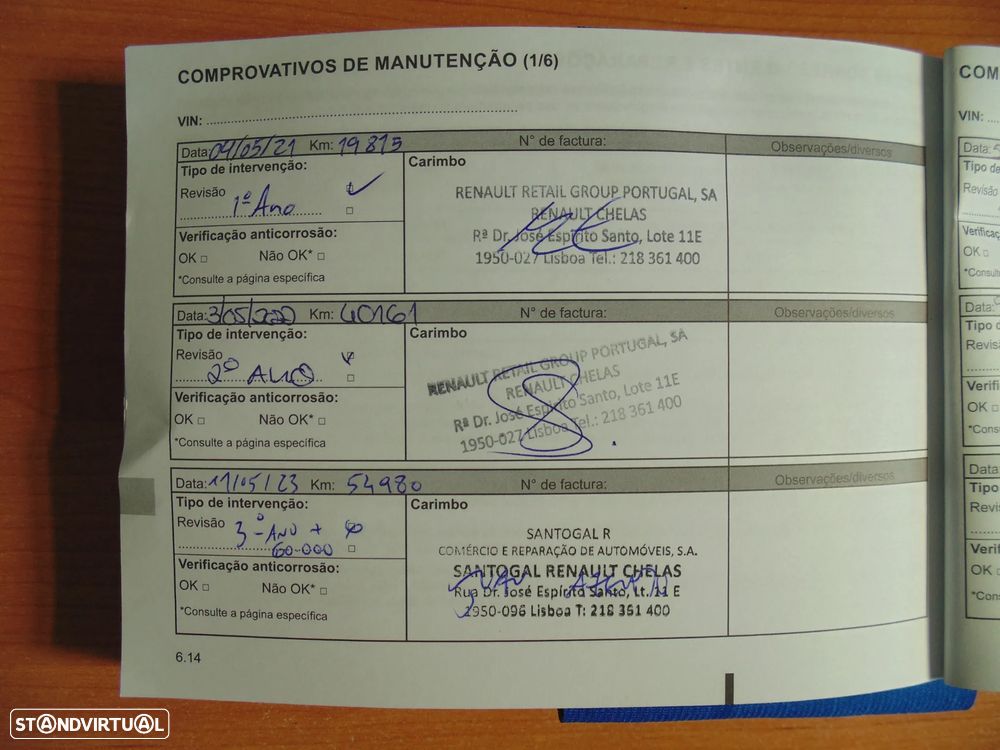 COMPROVATIVOS DE MANUTENÇÃO (1/6)
VIN:
Data: 04/05/21 Km: 19815 N° de factura: Observações/diversos
Tipo de intervenção: Carimbo
Revisão
1º Ano
RENAULT RETAIL GROUP PORTUGAL, SA
RENAULT CHELAS
Rª Dr. José Espírito Santo, Lote 11E
1950-027 Lisboa Tel.: 218 361 400
Verificação anticorrosão:
OK Não OK*
*Consulte a página específica
Data: 3/05/2020 Km: 40161 N° de factura: Observações/diversos
Tipo de intervenção: Carimbo
Revisão
2º ANO
RENAULT RETAIL GROUP PORTUGAL, SA
RENAULT CHELAS
Rª Dr. José Espírito Santo, Lote 11E
1950-027 Lisboa Tel.: 218 361 400
Verificação anticorrosão:
OK Não OK*
*Consulte a página específica
Data: 11/05/23 Km: 54980 N° de factura: Observações/diversos
Tipo de intervenção: Carimbo
Revisão
3º ANO +
60-000
SANTOGAL R
COMÉRCIO E REPARAÇÃO DE AUTOMÓVEIS, S.A.
SANTOGAL RENAULT CHELAS
Rua Dr. José Espírito Santo, Lt. 11 E
1950-096 Lisboa T: 218 361 400
Verificação anticorrosão:
OK Não OK*
*Consulte a página específica
6.14
COM
VIN:
Data:
Tipo de
Revisão
Verificaç
OK
*Consult
Data:
Tipo
Revis
Verifi
OK
*Cons
Data
Tipo
Revi
Verif
OK
*Con
STANDVIRTUAL